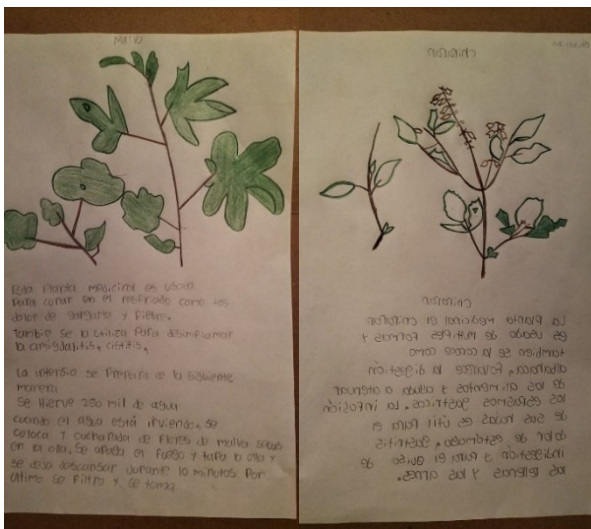 Malva
Esta Planta medicinal es usada
Para curar en el resfriado como los
dolor de garganta y fiebre.
Tambie se la utiliza Para desinflamar
la amigdalitis, cistitis.
La
se Prepara de la siguiente
manera
Se Hierve 250 mil de agua
cuando el agua está irviendo. se
coloca y cucharada de Flores de malva secas
en la olla. Se apaga el Fuego y tapa la olla y
se deja descansar durante 10 minutos Por
ultimo se Filtra y se toma.
chirirán
chirirán
La Planta medicinal el chirirán
es usado de
Formas y
también se la conoce como
albahaca, Favorece la digestión
de los alimentos y ayuda a atenuar
los espasmos gastricos. La infosión
de sus hojas es útil Para el
dolor de estómago, gastritis
indigestión y Para el guiso de
los rellenos y las